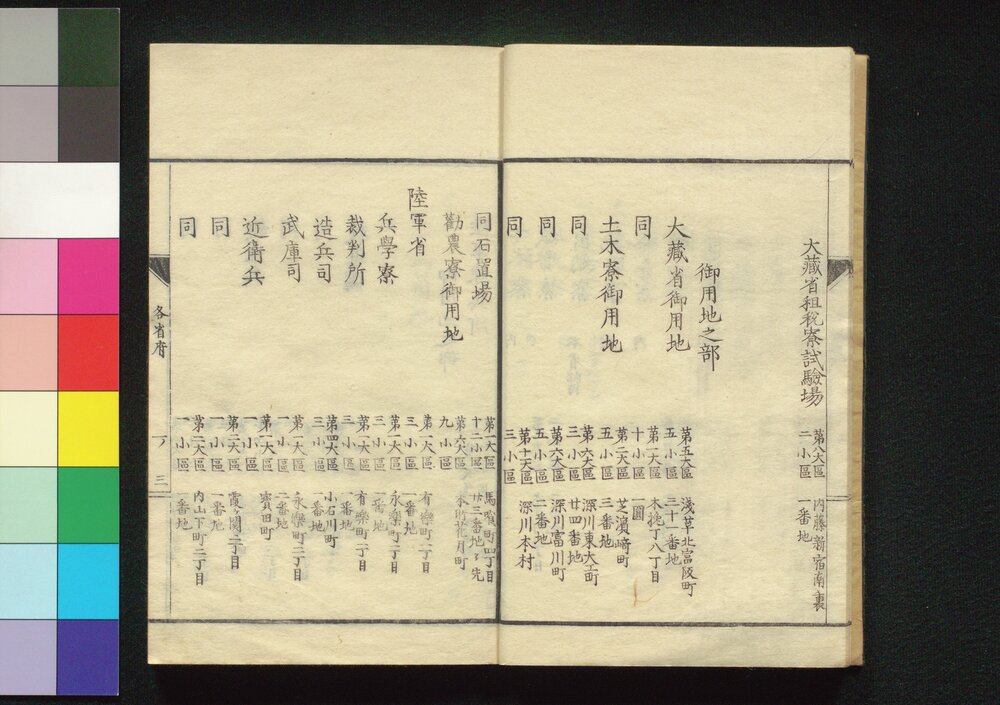 大藏省租税寮試驗場 第八大區二小區 内藤新宿南裏一番地
御用地之部
大藏省御用地 第五大區五小區 淺草北富坂町三十一番地
同 第二大區十小區 木挽丁八丁目一圓
土木寮御用地 第二大區五小區 芝濱﨑町三番地
同 第六大區三小區 深川東大工町廿四番地
同 第六大區五小區 深川富川町二番地
同 第十大區三小區 深川本村
同石置場 第一大區十二小區 馬喰町四丁目廿三番地ゟ先
勸農寮御用地 第六大區九小區 本所花月町
陸軍省
兵學寮 第一大區三小區 有樂町二丁目一番地
裁判所 第一大區三小區 永樂町一丁目二番地
造兵司 第一大區三小區 有樂町二丁目一番地
武庫司 第四大區三小區 小石川町一番地
近衛兵 第一大區一小區 永樂町二丁目二番地
同 第一大區一小區 寳田町
同 第二大區一小區 霞ヶ関二丁目一番地
第二大區一小區 内山下町二丁目一番地
各省府
三